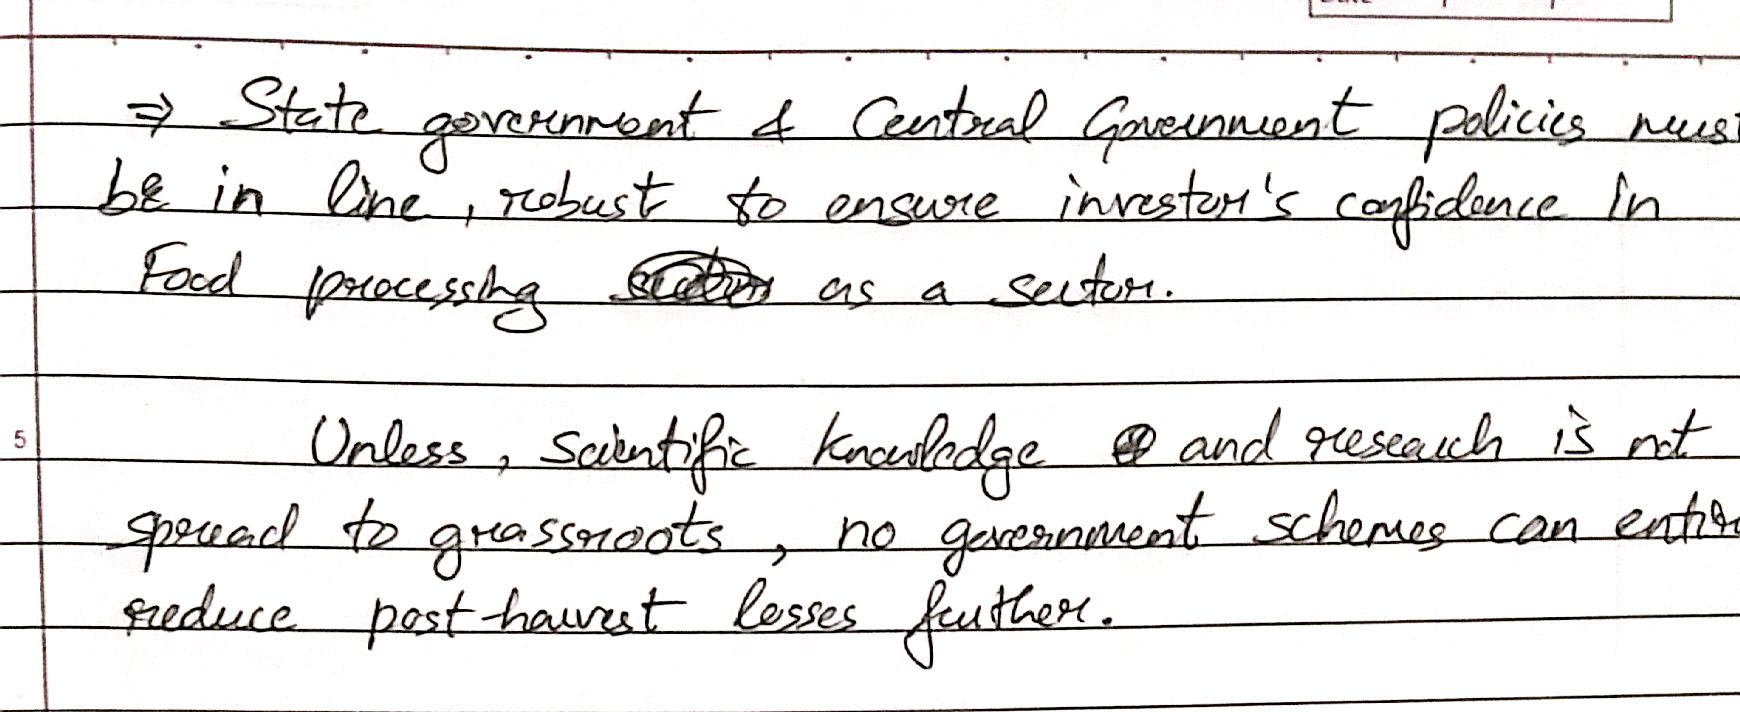 ⇒ State government & Central Government policies must
be in line, robust to ensure investor's confidence in
Food processing as a sector.
5
Unless, scientific knowledge and research is not
spread to grassroots, no government schemes can
reduce post-harvest losses further.